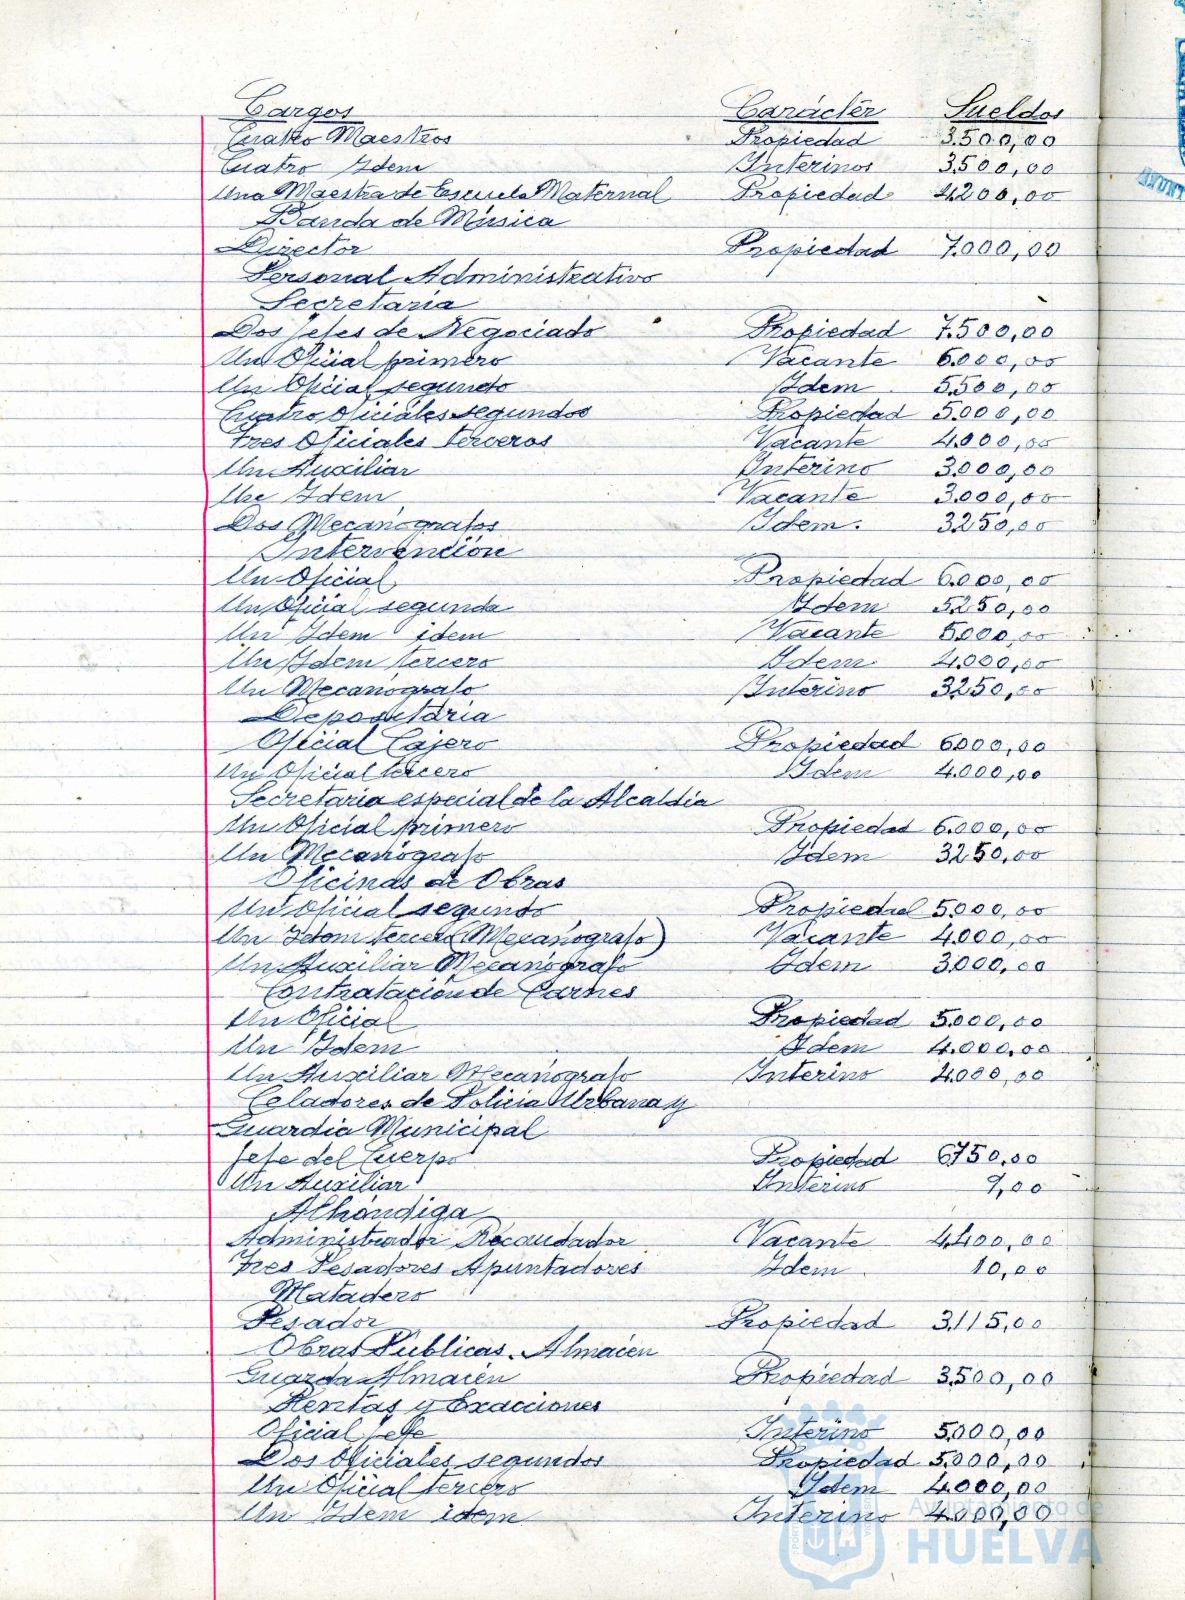 Cargos Carácter Sueldos
Cuatro Maestros Propiedad 3.500,00
Cuatro Idem Interinos 3.500,00
Una Maestra de Escuela Maternal Propiedad 4.200,00
Banda de Música
Director Propiedad 7.000,00
Personal Administrativo
Secretaría
Dos Jefes de Negociado Propiedad 7.500,00
Un Oficial primero Vacante 6.000,00
Un Oficial segundo Idem 5.500,00
Cuatro Oficiales segundos Propiedad 5.000,00
Tres Oficiales terceros Vacante 4.000,00
Un Auxiliar Interino 3.000,00
Un Idem Vacante 3.000,00
Dos Mecanógrafos Idem. 3250,00
Intervención
Un Oficial Propiedad 6.000,00
Un Oficial segunda Idem 5.250,00
Un Idem idem Vacante 5.000,00
Un Idem tercero Idem 4.000,00
Un Mecanógrafo Interino 3.250,00
Depositaria
Oficial Cajero Propiedad 6.000,00
Un Oficial tercero Idem 4.000,00
Secretaria especial de la Alcaldía
Un Oficial primero Propiedad 6.000,00
Un Mecanógrafo Idem 3.250,00
Oficinas de Obras
Un Oficial segundo Propiedad 5.000,00
Un Idem tercero (Mecanógrafo) Vacante 4.000,00
Un Auxiliar Mecanógrafo Idem 3.000,00
Contratación de Carnes
Un Oficial Propiedad 5.000,00
Un Idem Idem 4.000,00
Un Auxiliar Mecanógrafo Interino 4.000,00
Celadores de Policía Urbana y
Guardia Municipal
Jefe del Cuerpo Propiedad 6.750,00
Un Auxiliar Interino 9,00
Alhóndiga
Administrador Recaudador Vacante 4.400,00
Tres Pesadores Apuntadores Idem 10,00
Matadero
Pesador Propiedad 3.115,00
Obras Públicas. Almacén
Guarda Almacén Propiedad 3.500,00
Rentas y Exacciones
Oficial jefe Interino 5.000,00
Dos Oficiales segundos Propiedad 5.000,00
Un Oficial tercero Idem 4.000,00
Un Idem idem Interino 4.000,00
Ayuntamiento de
HUELVA